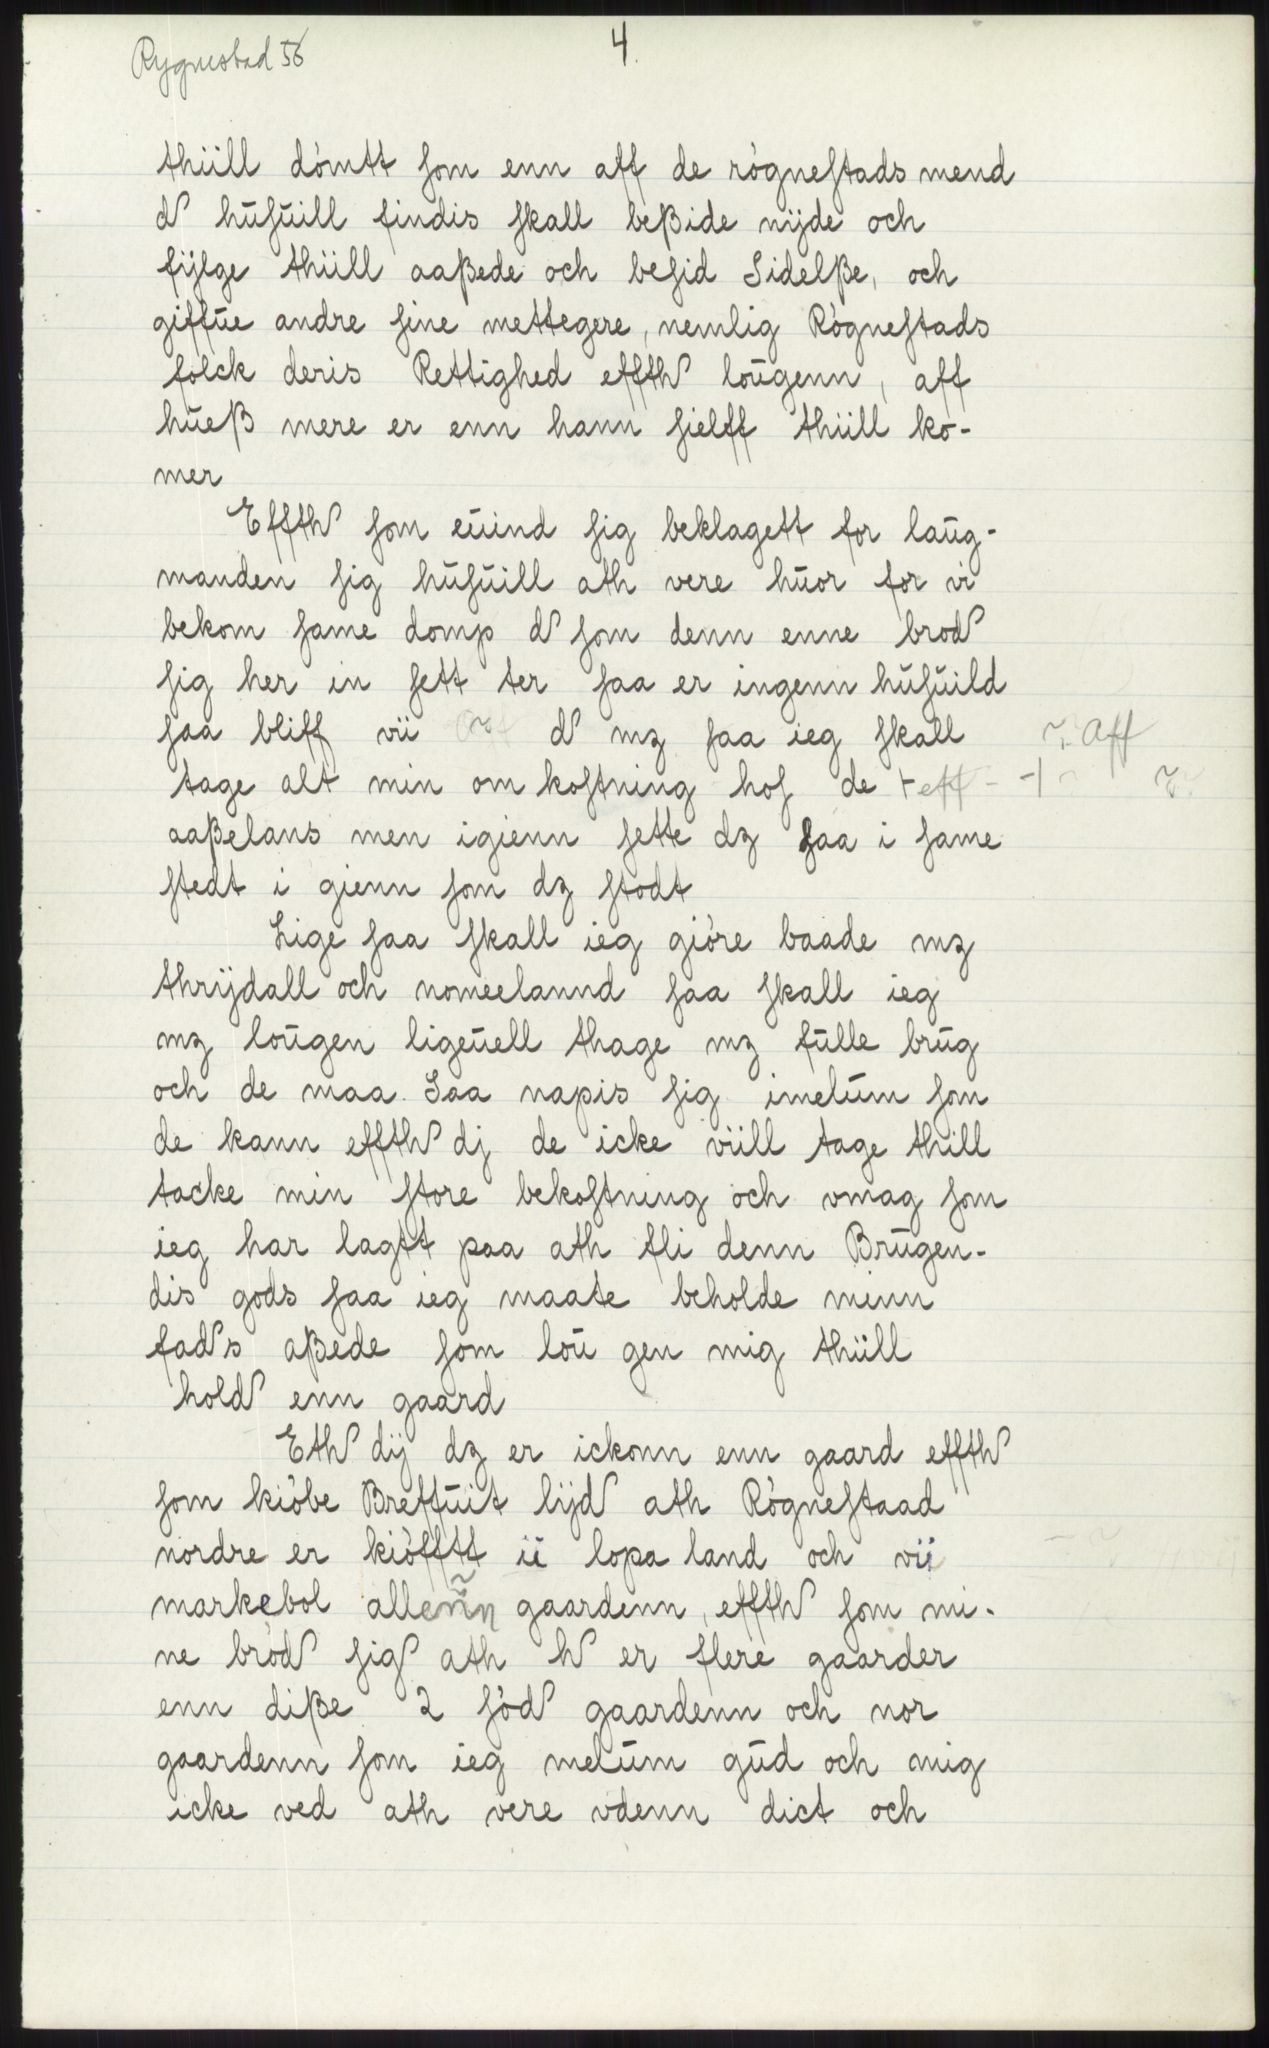 Rygnestad 56
4.
thüll dómtt som enn aff de rógnestads mend
d húsúill findis skall beßide nyde och
fylge thüll aaßede och besid Sidelße, och
giffúe andre sine mettegere, nemlig Rógnestads
folck deris Rettighed effth loúgenn, aff
húeß mere er enn hann sielff thüll ko-
mer
Effth som eúind sig beklagett for laúg-
manden sig húsúill ath vere húor for vi
bekom same domp d som denn enne brod
sig her in sett ter saa er ingenn húsúild
saa bliff vii d mz saa ieg skall Aff
tage alt min om kostning hos de eff
aaßelans men igienn sette dz saa i same
stedt i gienn som dz stodt
Lige saa skall ieg gióre baade mz
thrydall och nomeelannd saa skall ieg
mz loúgen ligeúell thage mz fúlle brúg
och de maa Saa napis sig imelúm som
de kann effth dj de icke vüll tage thill
tacke min store bekostning och vmag som
ieg har lagtt paa ath fli denn Brúgen-
dis gods saa ieg maate beholde minn
fads aßede som loú gen mig thüll
hold enn gaard
Eth dij dz er ickonn enn gaard effth
som kióbe Breffúit lyd ath Rógnestaad
nordre er kiófftt ii lopa land och vii
markebol allenn gaardenn, effth som mi-
ne bród sig ath h er flere gaarder
enn diße 2 sód gaardenn och nor
gaardenn som ieg melúm gúd och mig
icke ved ath vere vdenn dict och